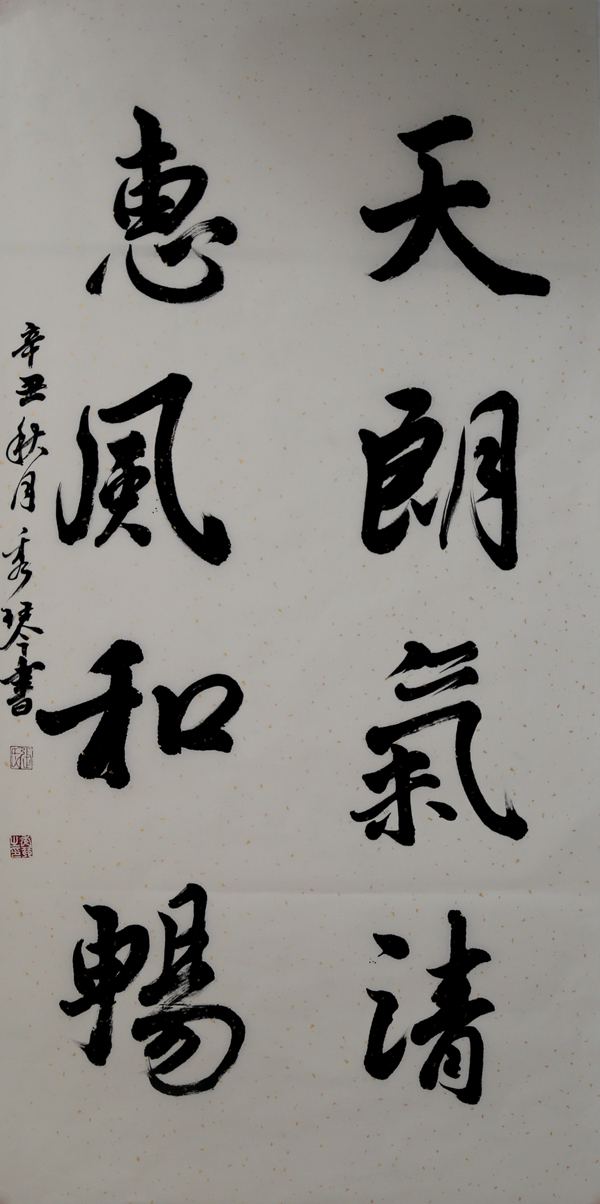 天朗氣清
惠風和暢
辛丑秋月秀琴書